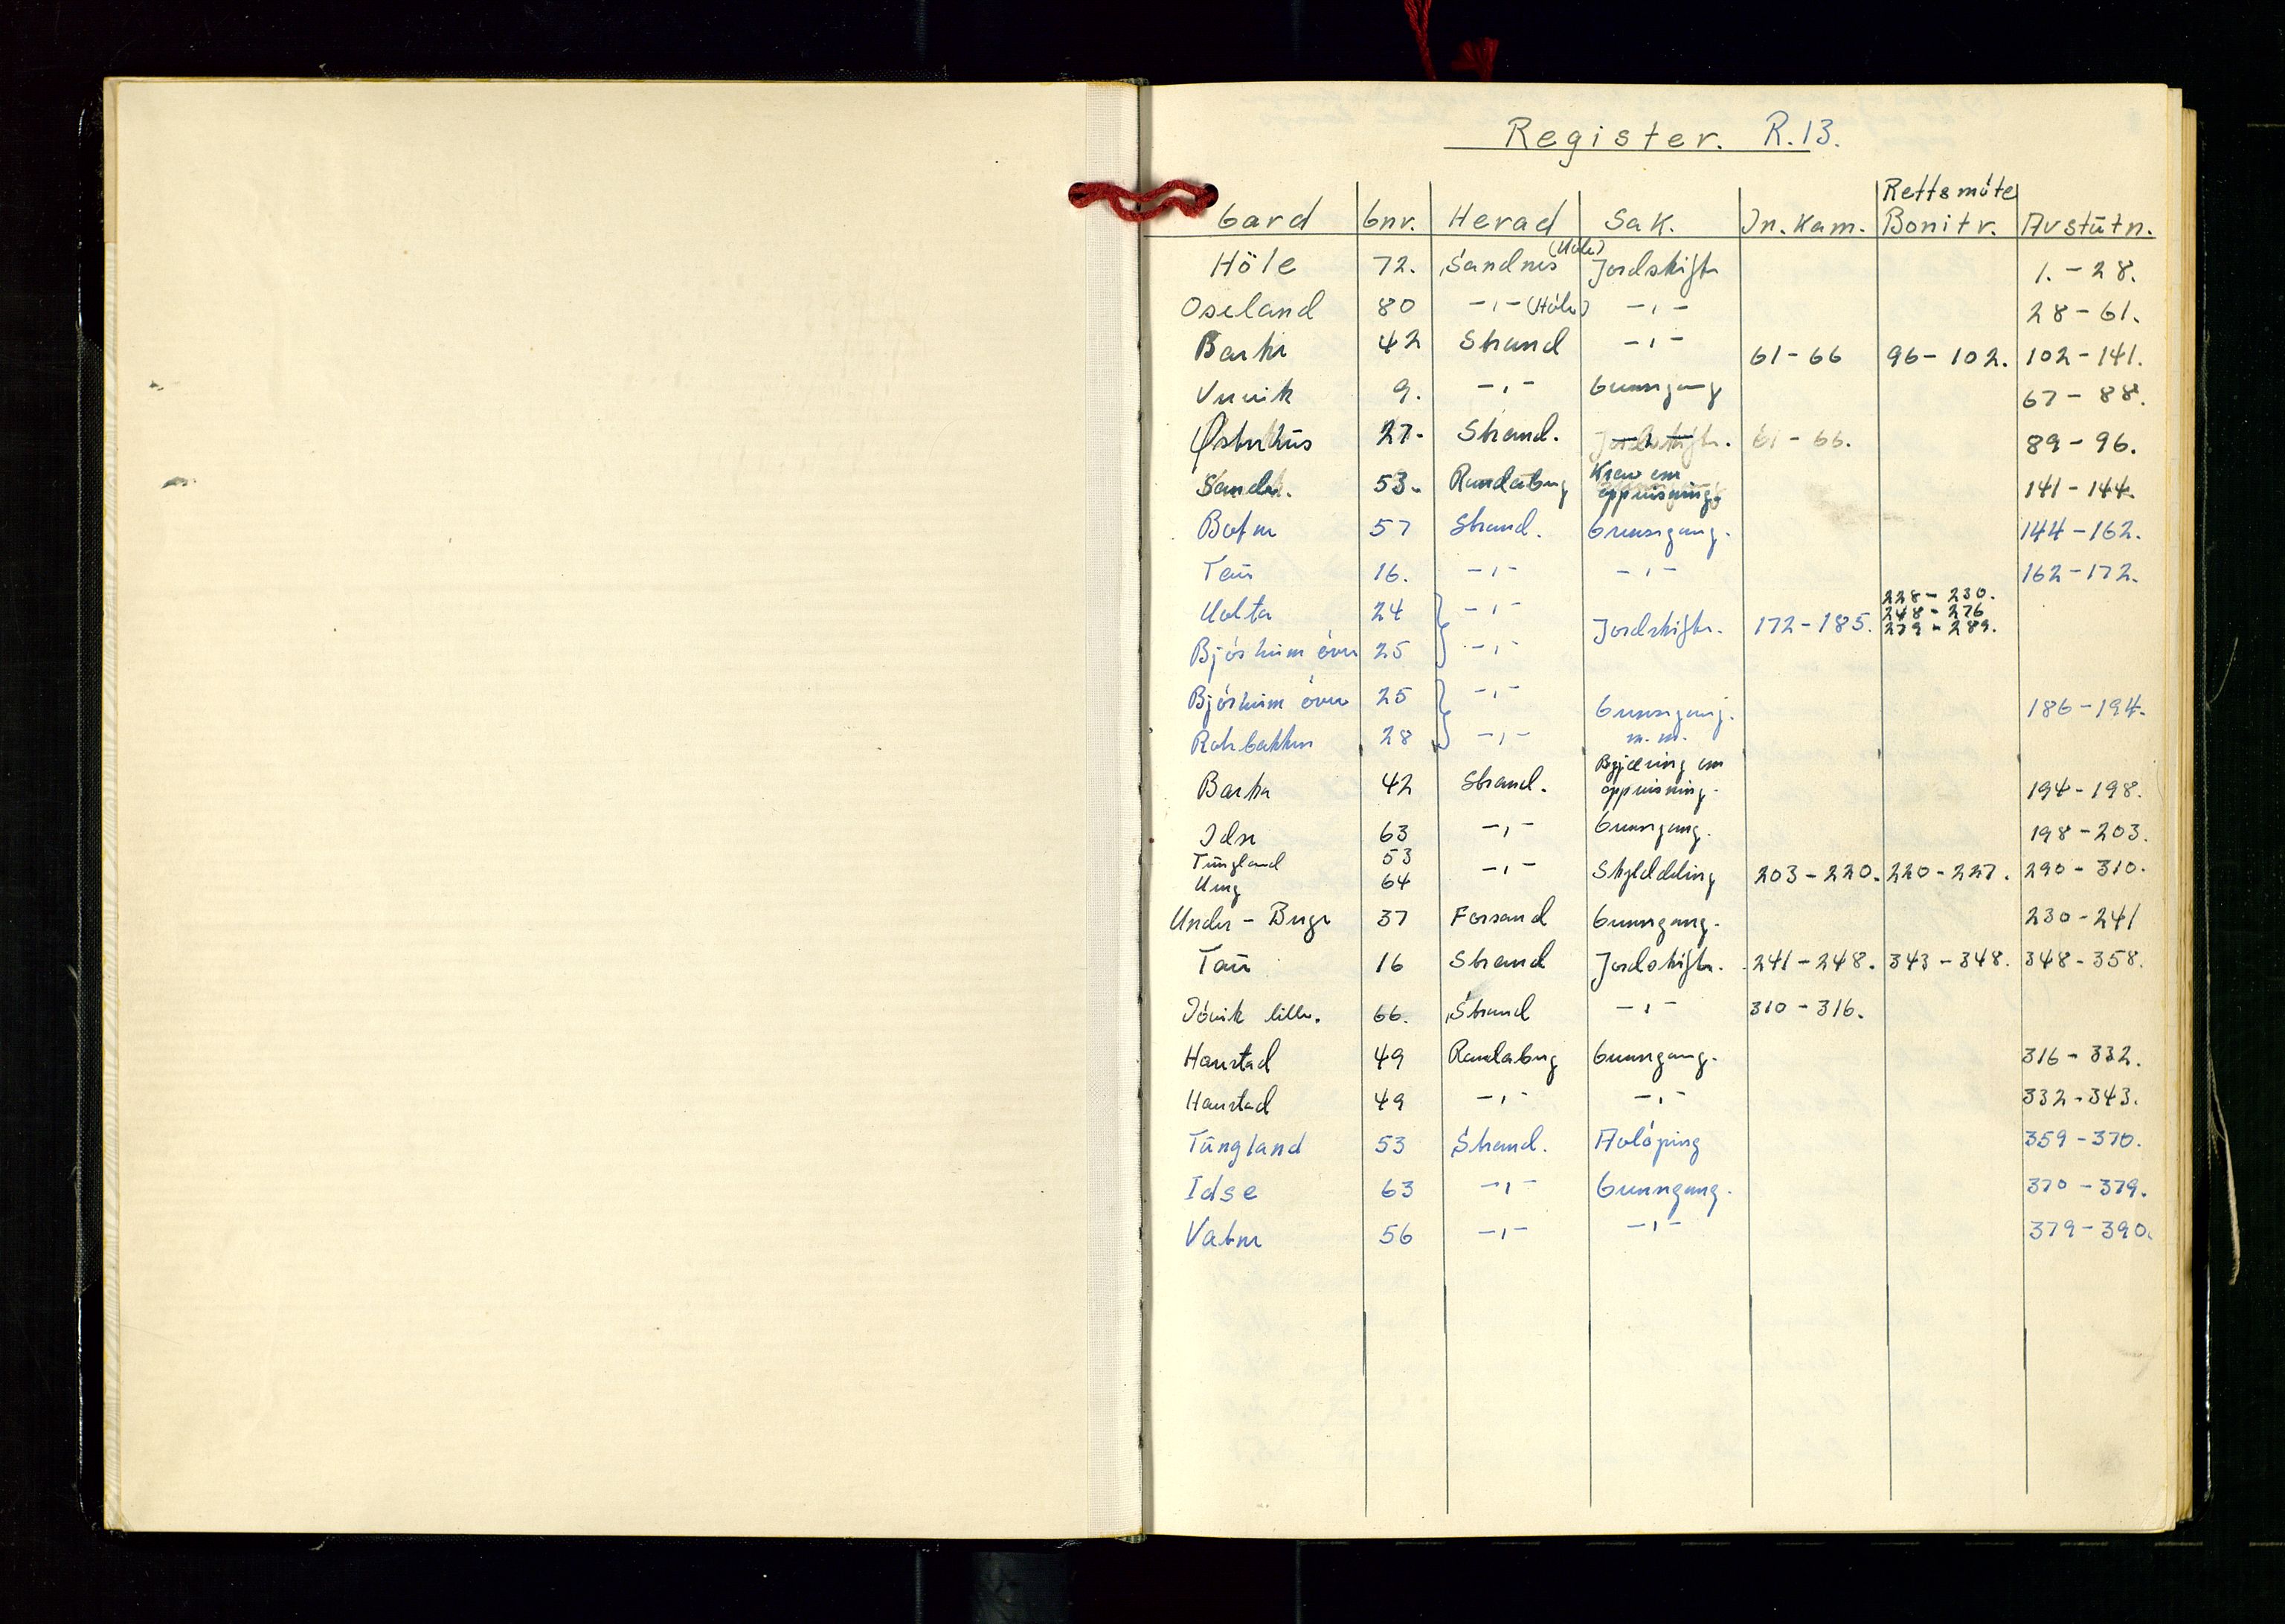 Register. R.13.
Rettsmöte
Gard Gnr. Herad Sak. In. Kam. Bonitr. Avslutn.
Höle 72. Sandnes (Höle) Jordskifte 1. - 28.
Oseland 80 -,- (Höle) -,- 28 - 61.
Barka 42 Strand -,- 61 - 66 96 - 102. 102 - 141.
9. -,- Grensegang 67 - 88.
Østerhus 27. Strand. Jordskifte. 61 - 66. 89 - 96.
Sande. 53. Randaberg Krav om oppreisning 141 - 144.
Botne 57 Strand. Grensegang. 144 - 162.
Tau 16. -,- -,- 162 - 172.
Holta 24 -,- Jordskifte. 172 - 185. 228 - 230. 248 - 276 279 - 289.
Bjösheim övre 25 -,-
Bjösheim övre 25 -,- Grensegang. m. m. 186 - 194.
28 -,-
Barka 42 Strand. Begjæring om oppreisning. 194 - 198.
Idse 63 -,- Grensegang. 198 - 203.
Tungland 53 -,- Skylddeling 203 - 220. 220 - 227. 290 - 310.
Heng 64
Under - Berge 37 Forsand Grensegang. 230 - 241
Tau 16 Strand Jordskifte. 241 - 248. 343 - 348. 348 - 358.
Jövik litle. 66. Strand -,- 310 - 316.
Harestad 49 Randaberg Grensegang. 316 - 332.
Harestad 49 -,- -,- 332 - 343.
Tungland 53 Strand. Avlöysing 359 - 370.
Idse 63 -,- Grensegang. 370 - 379.
Vatne 56 -,- -,- 379 - 390.